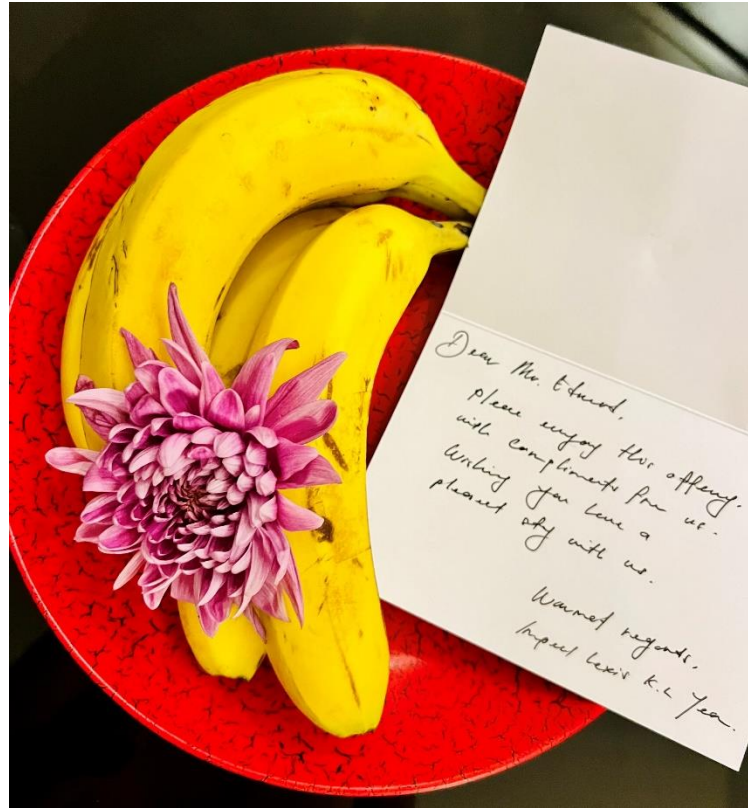 Dear Mr. Edmund,
please enjoy this offering.
with compliments from us.
Wishing you have a
pleasant stay with us.
Warmest regards,
Imperial Lexis K.L Team.